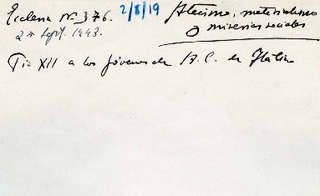 Ecclesia Nº 376. 2/8/19 Ateismo, materialismo
24 Sept. 1948. y miserias sociales
Pio XII a los jóvenes de A.C. de Italia